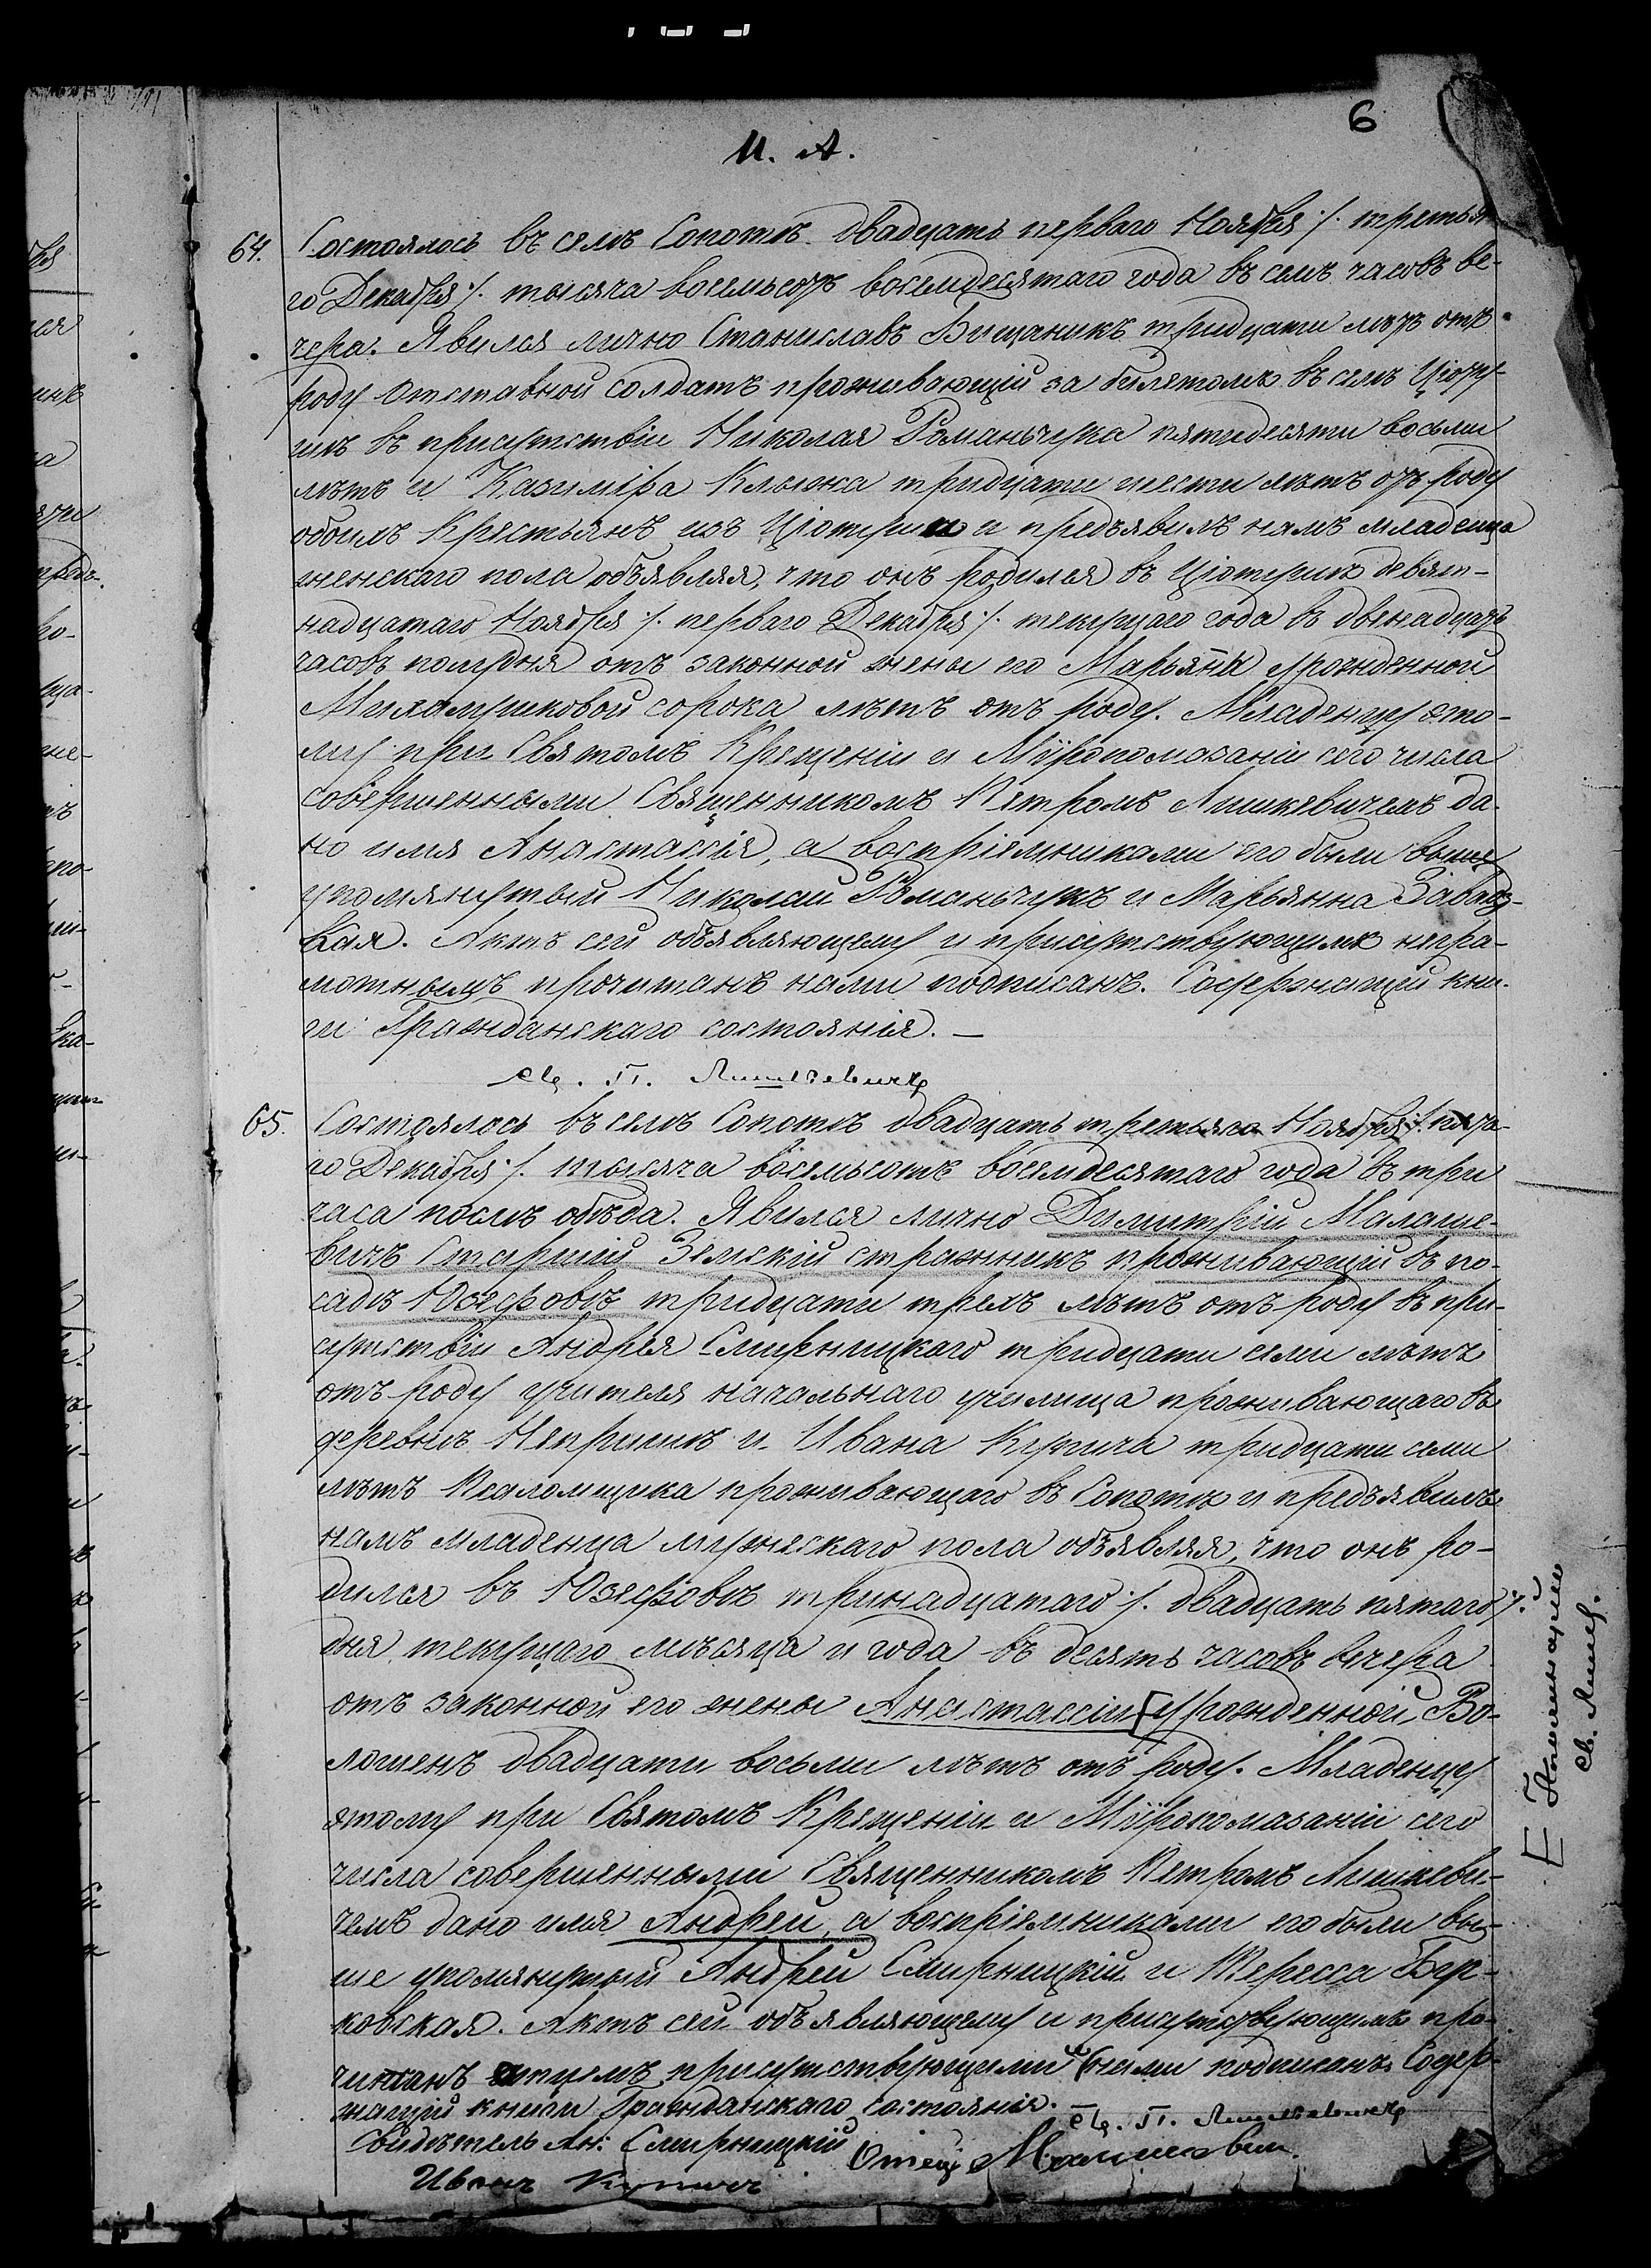 6
И. А.
64. Состоялось въ селѣ Сопотѣ двадцать перваго Ноября /. третья-
го Декабря /. тысяча восемьсотъ восемдесятаго года въ семь часовъ ве-
чера. Явился лично Станиславъ Бищаникъ тридцати лѣтъ отъ
роду отставной солдатъ проживающій за билетомъ въ селѣ Ціотру-
шѣ въ присутствіи Николая Романчука пятидесяти восьми
лѣтъ и Казиміра Клыжа тридцати шести лѣтъ отъ роду
обоихъ Крестьянъ изъ и предъявилъ намъ младенца
женскаго пола объявляя, что онъ родился въ девят-
надцатаго Ноября /. перваго Декабря /. текущаго года въ двенадцать
часовъ полудня отъ законной жены его Марьяны урожденной
сорока лѣтъ отъ роду. Младенцу это-
му при Святомъ Крещеніи и Мѵропомазаніи сего числа
совершенными Священникомъ Петромъ Лишкевичемъ да-
но имя Анастассія, а воспріемниками его были выше
упомянутый Николай Романчукъ и Марьянна Завад-
ская. Актъ сей объявляющему и присутствующимъ негра-
мотнымъ прочитанъ нами подписанъ. Содержащій кни-
ги Гражданскаго состоянія. —
Св. П. Лишкевичъ
65. Состоялось въ селѣ Сопотѣ двадцать третьяго Ноября /. пята-
го Декабря /. тысяча восемьсотъ восемдесятаго года въ три
часа послѣ обѣда. Явился лично Димитрій Малаше-
вичъ Старшій Земскій стражникъ проживающій въ по-
садѣ Юзефовѣ тридцати трехъ лѣтъ отъ роду въ при-
сутствіи Андрея Смирницкаго тридцати семи лѣтъ
отъ роду учителя начальнаго училища проживающаго въ
деревнѣ Непришѣ и Ивана тридцати семи
лѣтъ Псаломщика проживающаго въ Сопотѣ и предъявилъ
намъ младенца мужескаго пола объявляя, что онъ ро-
дился въ Юзефовѣ тринадцатаго /. двадцать пятаго /.
дня текущаго мѣсяца и года въ десять часовъ вечера
отъ законной его жены Анастассіи [урожденной Во-
лошенъ двадцати восьми лѣтъ отъ роду. Младенцу
этому при Святомъ Крещеніи и Мѵропомазаніи сего
числа совершенными Священникомъ Петромъ Лишкеви-
чемъ дано имя Андрей, а воспріемниками его были вы-
ше упомянутый Андрей Смирницкій и Тересса Бур-
ковская. Актъ сей объявляющему и присутствующимъ про-
читанъ присутствующими и нами подписанъ. Содер-
жащій книги Гражданскаго состоянія. — Св. П. Лишкевичъ
Свидѣтель Ан: Смирницкій Отецъ Малашевич
Иванъ
Св. Лишк.